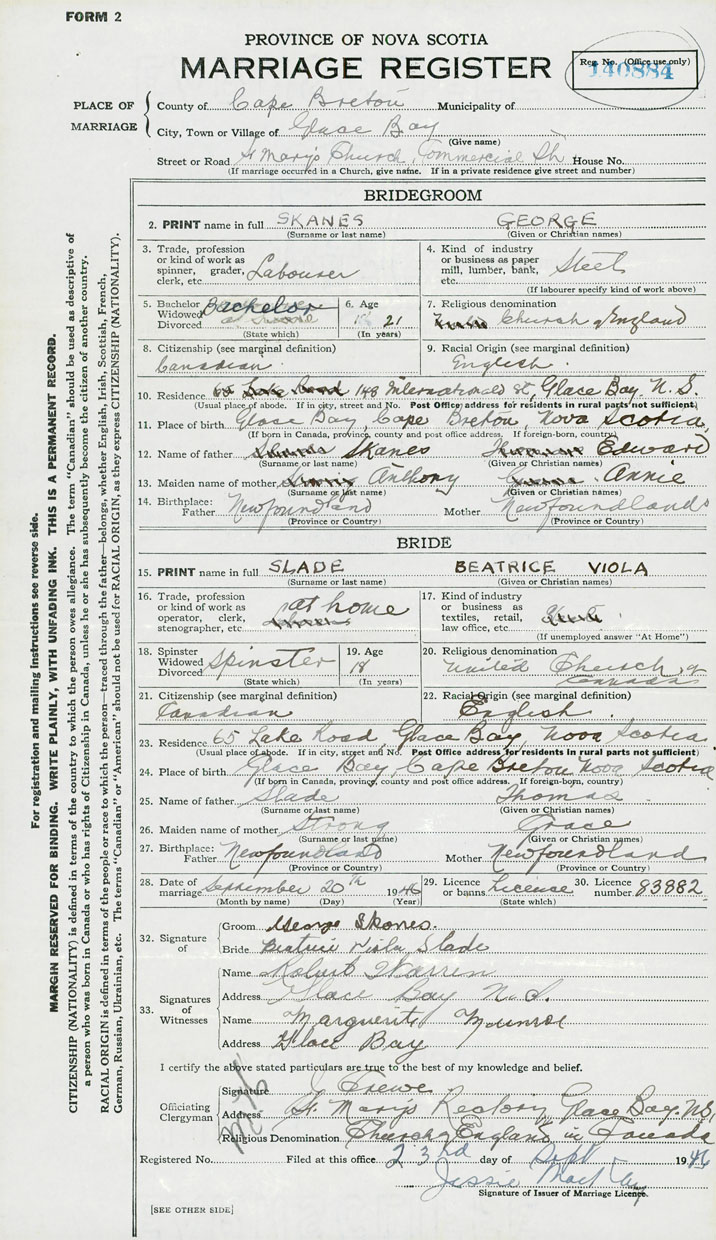 FORM 2
PROVINCE OF NOVA SCOTIA
MARRIAGE REGISTER
Reg. No. (Office use only)
140884
PLACE OF MARRIAGE
County of Cape Breton Municipality of
City, Town or Village of Glace Bay
(Give name)
Street or Road St Mary's Church, Commercial St. House No.
(If marriage occurred in a Church, give name. If in a private residence give street and number)
BRIDEGROOM
2. PRINT name in full SKANES GEORGE
(Surname or last name) (Given or Christian names)
3. Trade, profession or kind of work as spinner, grader, clerk, etc. Labourer
4. Kind of industry or business as paper mill, lumber, bank, etc. Steel
(If labourer specify kind of work above)
5. Bachelor Widowed Divorced Bachelor
(State which)
6. Age 21
(In years)
7. Religious denomination Church of England
8. Citizenship (see marginal definition) Canadian
9. Racial Origin (see marginal definition) English
10. Residence 65 Lake Road 148 International St, Glace Bay N. S.
(Usual place of abode. If in city, street and No. Post Office address for residents in rural parts not sufficient)
11. Place of birth Glace Bay, Cape Breton, Nova Scotia
(If born in Canada, province, county and post office address. If foreign-born, country)
12. Name of father Skanes Edward
(Surname or last name) (Given or Christian names)
13. Maiden name of mother Anthony Annie
(Surname or last name) (Given or Christian names)
14. Birthplace: Father Newfoundland Mother Newfoundland
(Province or Country) (Province or Country)
BRIDE
15. PRINT name in full SLADE BEATRICE VIOLA
(Surname or last name) (Given or Christian names)
16. Trade, profession or kind of work as operator, clerk, stenographer, etc. at home
17. Kind of industry or business as textiles, retail, law office, etc.
(If unemployed answer "At Home")
18. Spinster Widowed Divorced Spinster
(State which)
19. Age 18
(In years)
20. Religious denomination United Church of Canada
21. Citizenship (see marginal definition) Canadian
22. Racial Origin (see marginal definition) English
23. Residence 65 Lake Road, Glace Bay, Nova Scotia
(Usual place of abode. If in city, street and No. Post Office address for residents in rural parts not sufficient)
24. Place of birth Glace Bay, Cape Breton Nova Scotia
(If born in Canada, province, county and post office address. If foreign-born, country)
25. Name of father Slade Thomas
(Surname or last name) (Given or Christian names)
26. Maiden name of mother Strong Grace
(Surname or last name) (Given or Christian names)
27. Birthplace: Father Newfoundland Mother Newfoundland
(Province or Country) (Province or Country)
28. Date of marriage September 20th 1946
(Month by name) (Day) (Year)
29. Licence or banns Licence
(State which)
30. Licence number 83882
32. Signature of
Groom George Skanes.
Bride Beatrice Viola Slade
33. Signatures of Witnesses
Name Robert Warren
Address Glace Bay N.S.
Name Marguerite Munroe
Address Glace Bay
I certify the above stated particulars are true to the best of my knowledge and belief.
Officiating Clergyman
Signature J Crewe
Address St. Mary's Rectory, Glace Bay. N.S.
Religious Denomination Church of England in Canada
Registered No. Filed at this office 23rd day of Sept 1946
Jessie
Signature of Issuer of Marriage Licence.
[SEE OTHER SIDE]
For registration and mailing instructions see reverse side.
MARGIN RESERVED FOR BINDING. WRITE PLAINLY, WITH UNFADING INK. THIS IS A PERMANENT RECORD.
CITIZENSHIP (NATIONALITY) is defined in terms of the country to which the person owes allegiance. The term "Canadian" should be used as descriptive of
a person who was born in Canada or who has rights of Citizenship in Canada, unless he or she has subsequently become the citizen of another country.
RACIAL ORIGIN is defined in terms of the people or race to which the person—traced through the father—belongs, whether English, Irish, Scottish, French,
German, Russian, Ukrainian, etc. The terms "Canadian" or "American" should not be used for RACIAL ORIGIN, as they express CITIZENSHIP (NATIONALITY).